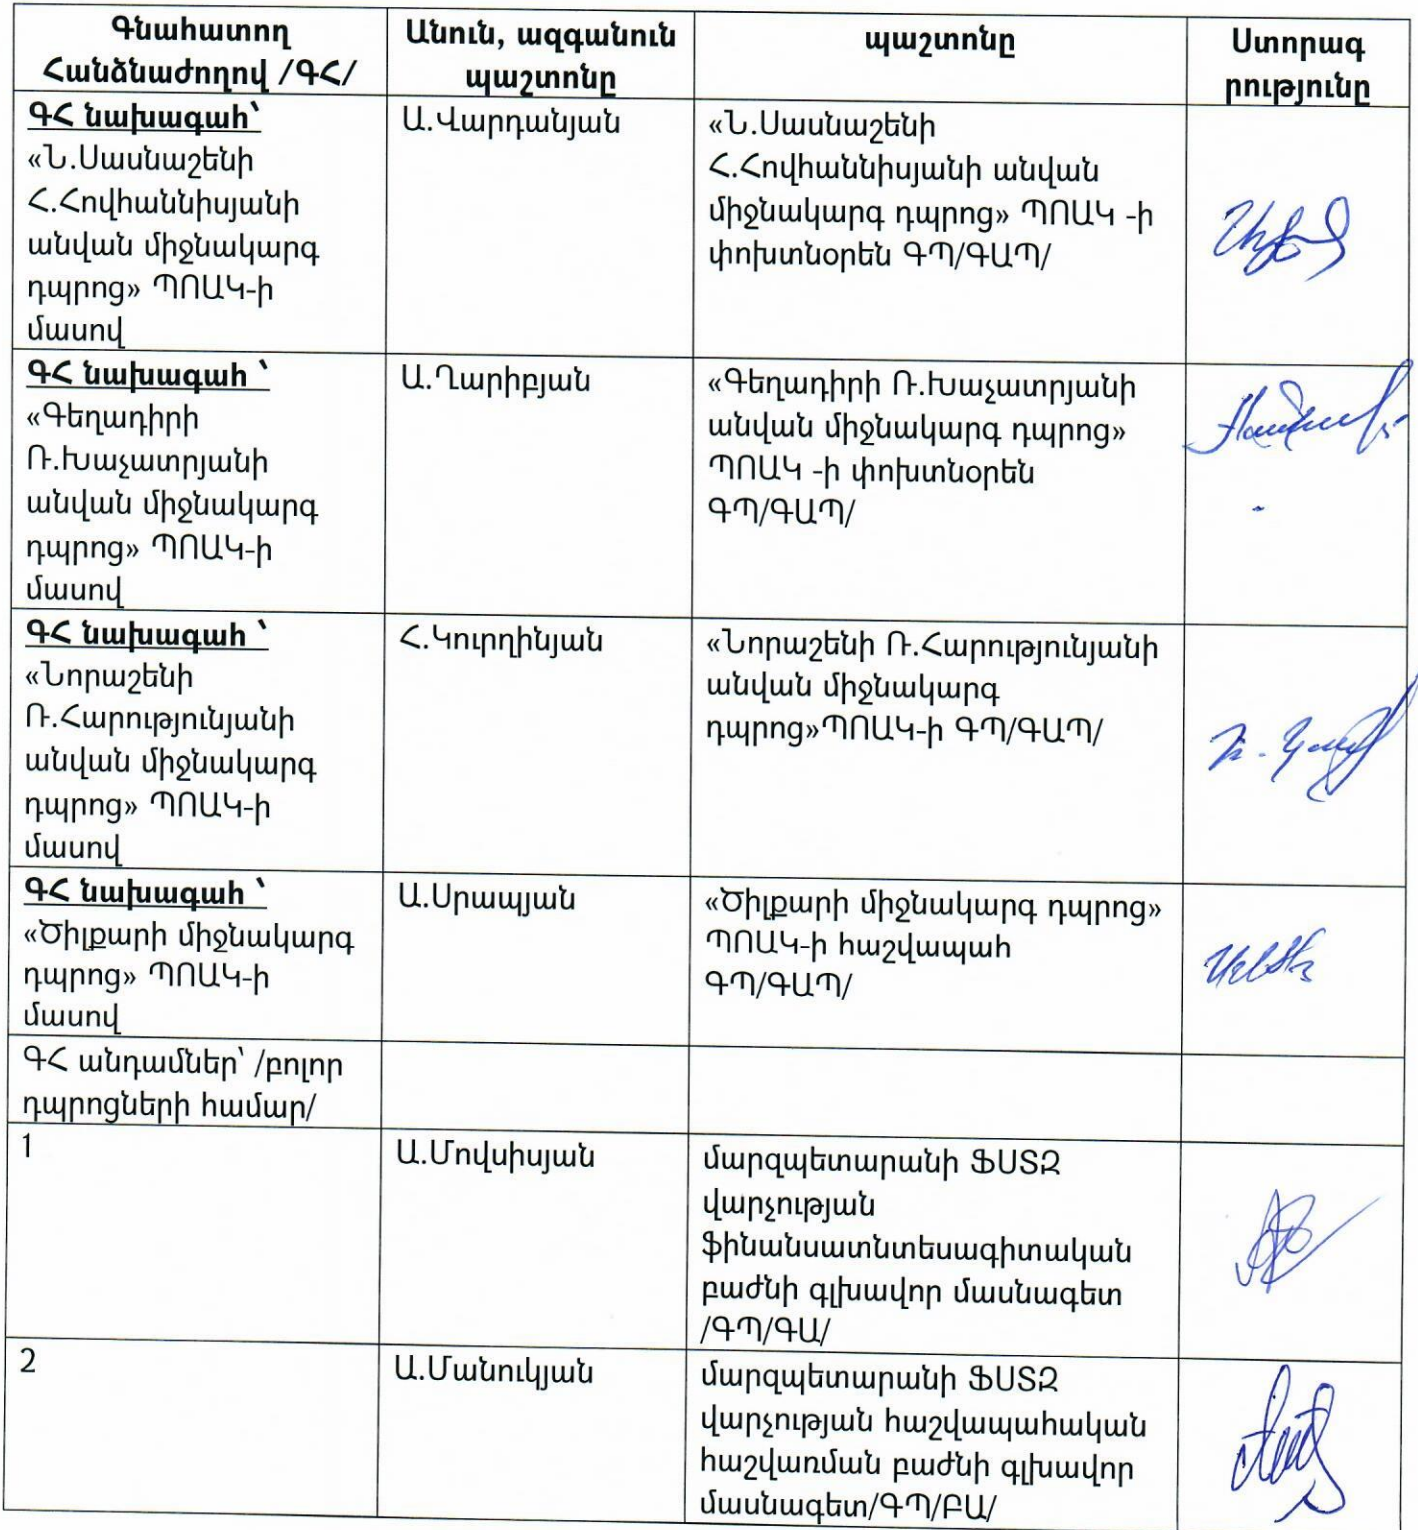 Գնահատող
Հանձնաժողով /ԳՀ/
Անուն, ազգանուն
պաշտոնը
պաշտոնը
Ստորագ
րությունը
ԳՀ նախագահ՝
«Ն.Սասնաշենի
Հ.Հովհաննիսյանի
անվան միջնակարգ
դպրոց» ՊՈԱԿ-ի
մասով
Ա.Վարդանյան
«Ն.Սասնաշենի
Հ.Հովհաննիսյանի անվան
միջնակարգ դպրոց» ՊՈԱԿ -ի
փոխտնօրեն ԳՊ/ԳԱՊ/
ԳՀ նախագահ ՝
«Գեղադիրի
Ռ.Խաչատրյանի
անվան միջնակարգ
դպրոց» ՊՈԱԿ-ի
մասով
Ա.Ղարիբյան
«Գեղադիրի Ռ.Խաչատրյանի
անվան միջնակարգ դպրոց»
ՊՈԱԿ -ի փոխտնօրեն
ԳՊ/ԳԱՊ/
ԳՀ նախագահ ՝
«Նորաշենի
Ռ.Հարությունյանի
անվան միջնակարգ
դպրոց» ՊՈԱԿ-ի
մասով
Հ.Կուրղինյան
«Նորաշենի Ռ.Հարությունյանի
անվան միջնակարգ
դպրոց»ՊՈԱԿ-ի ԳՊ/ԳԱՊ/
ԳՀ նախագահ ՝
«Ծիլքարի միջնակարգ
դպրոց» ՊՈԱԿ-ի
մասով
Ա.Սրապյան
«Ծիլքարի միջնակարգ դպրոց»
ՊՈԱԿ-ի հաշվապահ
ԳՊ/ԳԱՊ/
ԳՀ անդամներ՝ /բոլոր
դպրոցների համար/
1
Ա.Մովսիսյան
մարզպետարանի ՖՍՏԶ
վարչության
ֆինանսատնտեսագիտական
բաժնի գլխավոր մասնագետ
/ԳՊ/ԳԱ/
2
Ա.Մանուկյան
մարզպետարանի ՖՍՏԶ
վարչության հաշվապահական
հաշվառման բաժնի գլխավոր
մասնագետ/ԳՊ/ԲԱ/